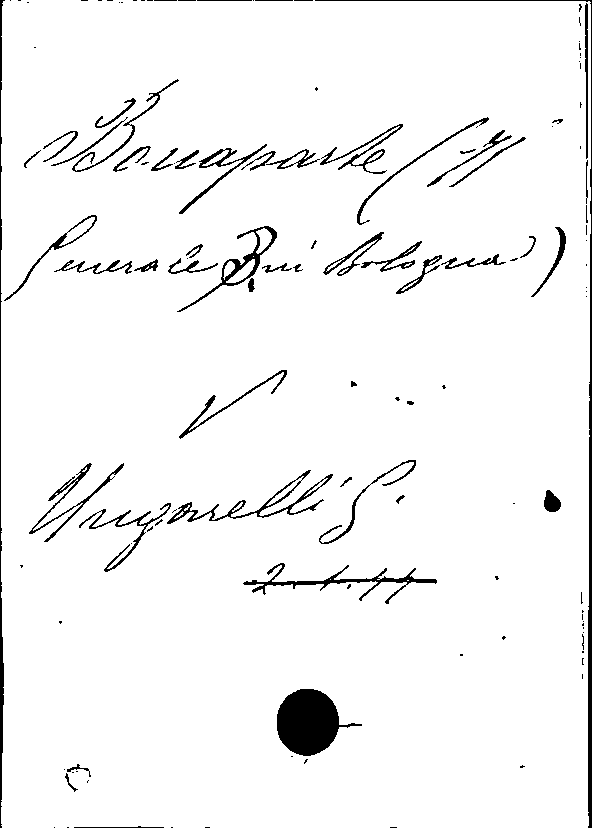 Bonaparte (Il
Generale B. in Bologna)
V
Ungarelli G.
2.1.44